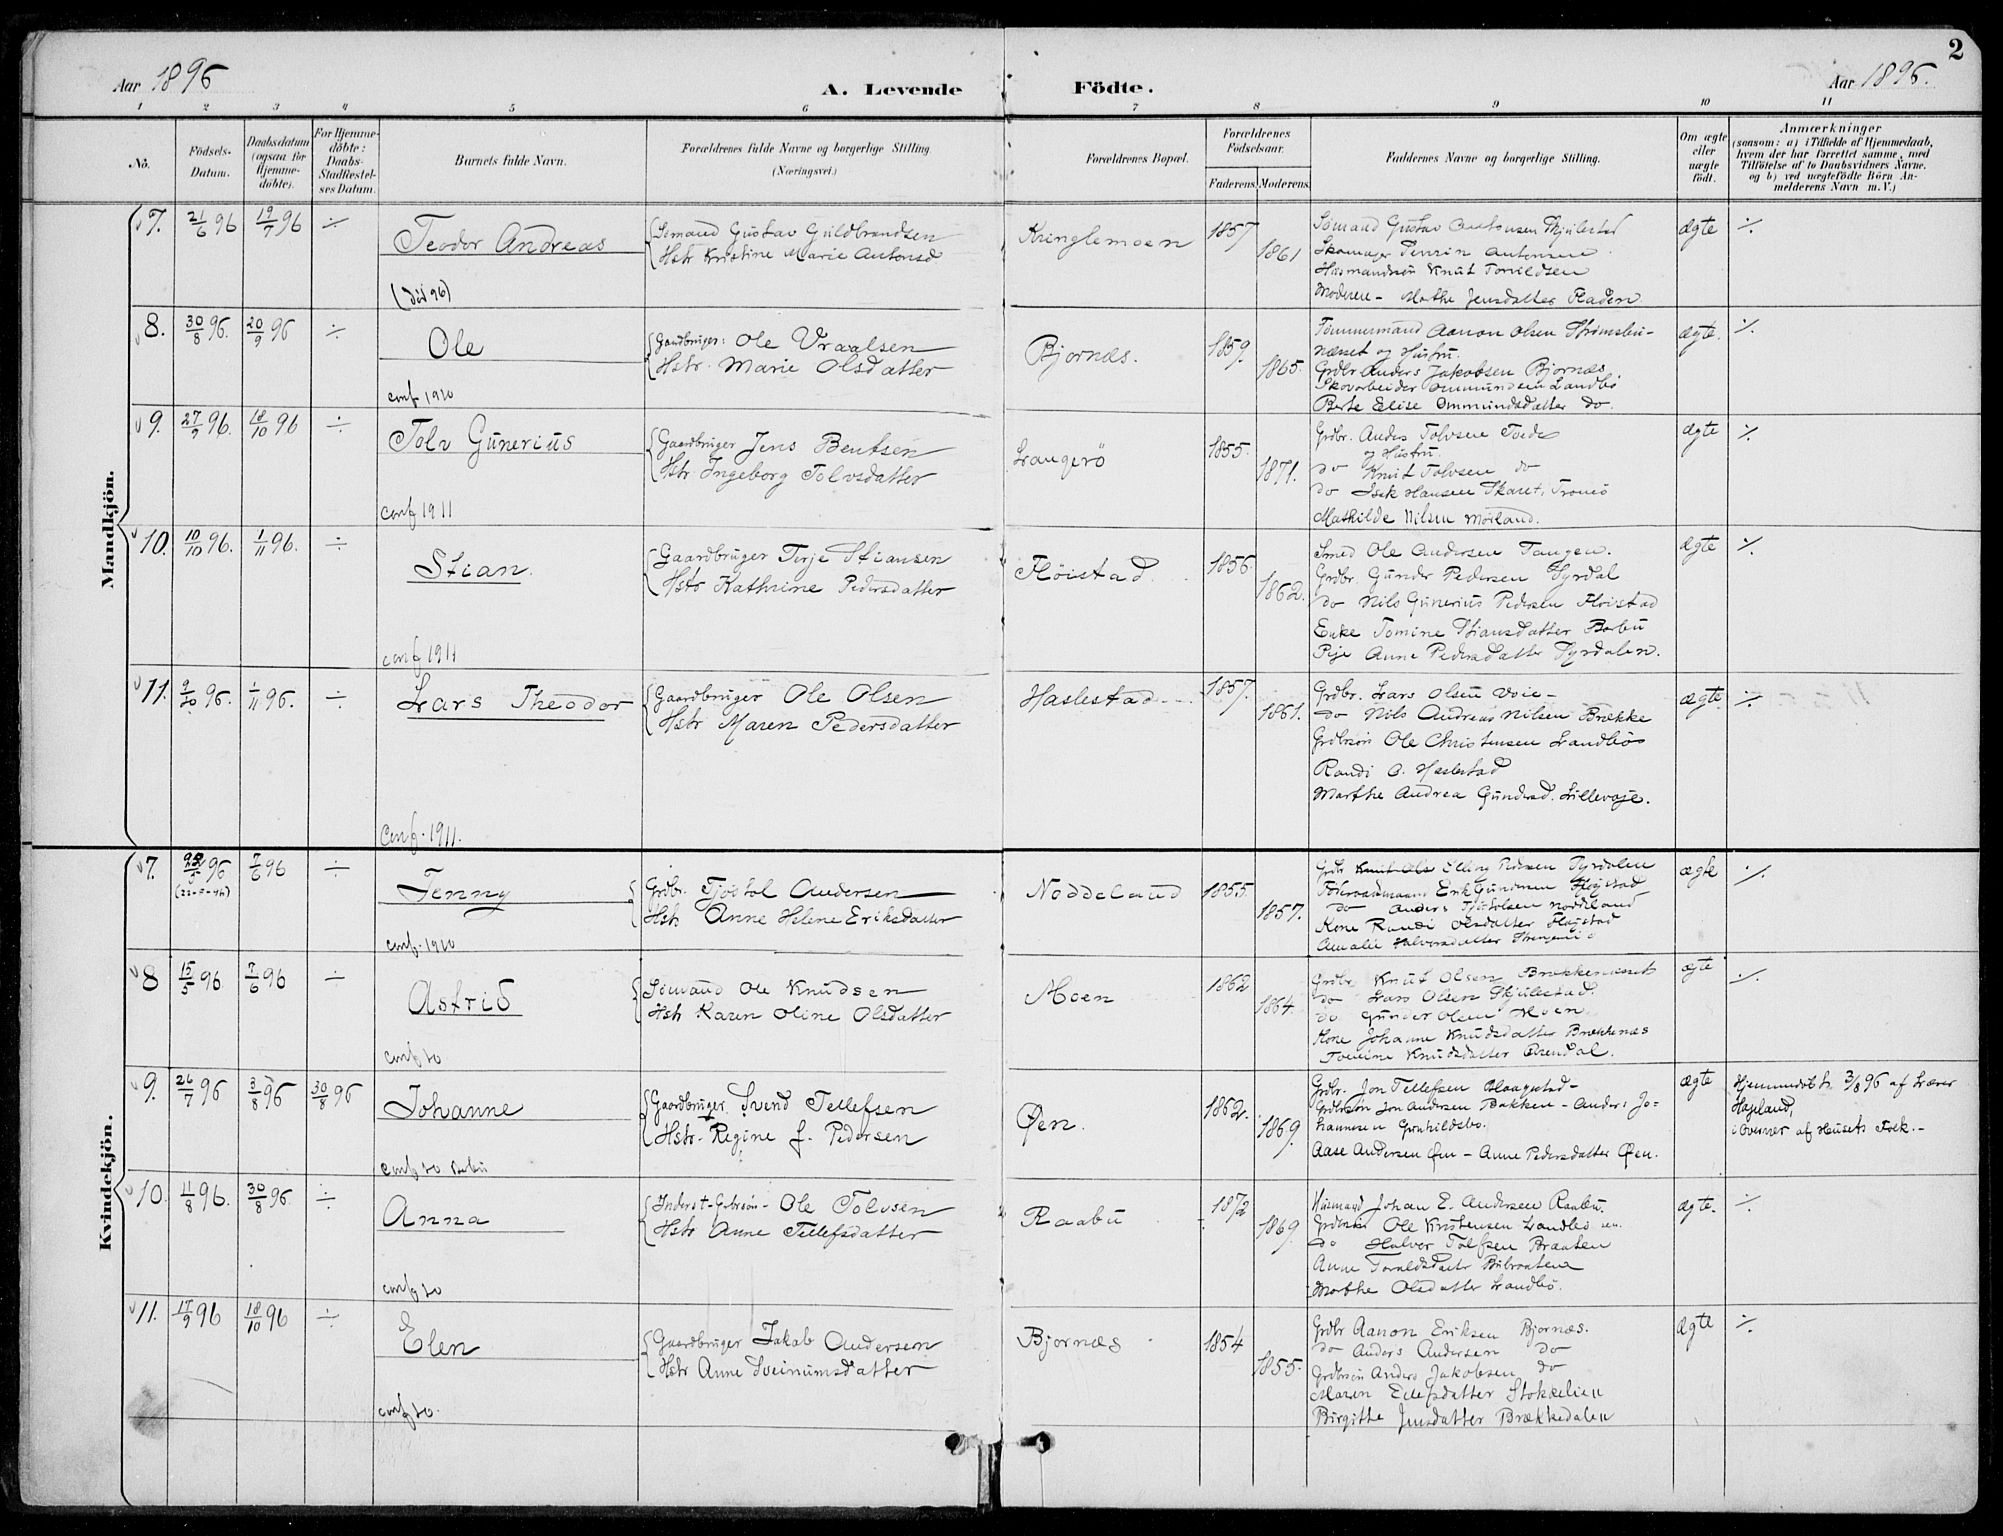 2
Aar 1896
A. Levende Födte.
Aar 1896.
1 2 3 4 5 6 7 8 9 10 11
No.
Födsels-Datum.
Daabsdatum (ogsaa for Hjemme-döbte).
For Hjemme-döbte: Daabs-Stadfæstel-ses Datum.
Barnets fulde Navn.
Forældrenes fulde Navne og borgerlige Stilling. (Næringsvei.)
Forældrenes Bopæl.
Forældrenes Födselsaar.
Faderens. Moderens.
Faddernes Navne og borgerlige Stilling.
Om ægte eller uægte födt.
Anmærkninger
(saasom: a) i Tilfælde af Hjemmedaab, hvem der har forrettet samme, med Tilföielse af to Daabsvidners Navne. og b) ved uægtefödte Börn An-melderens Navn m. V.)
Mandkjön.
7. 21/6 96 19/7 96 ÷
Teodor Andreas
(död 96)
Sömand Gustav Guldbrandsen
Hstr Kristine Marie Antonsd
Kringlemoen
1857
1861
Sömand Gustav Antonsen Skjulestad
Skomager Antonsen
Husmandssön Knut Torvildsen
Moderen - Marthe Jensdatter
ægte ./.
8. 30/8 96. 20/9 96 ÷
Ole
conf 1910
Gaardbruger: Ole Vraalsen
Hstr. Marie Olsdatter
Bjornæs.
1859.
1865.
Tömmermand Aanon Olsen Strömsbu-
næsset og Hustru.
Grdbr Anders Jakobsen Bjornæs.
Skovarbeider Ommundsen Landbö
Berte Elise Ommundsdatter do.
ægte. ./.
9. 27/9 96. 18/10 96 ÷
Tolv Gunerius
conf 1911
Gaardbruger Jens Bentsen
Hstr Ingeborg Tolvsdatter
Langerö
1855.
1871.
Grdbr. Anders Tolvsen
og Hustru.
do Knut Tolvsen do
do Isak Hansen Skaret, Tromö
Mathilde Nilsen Mörland.
ægte ./.
10. 10/10 96. 1/11 96. ÷
Stian.
conf 1911
Gaardbruger Terje Stiansen
Hstr Kathrine Pedersdatter
Flöistad
1856.
1862.
Smed Ole Andersen Tangen.
Grdbr. Gunder Pedersen Syrdal
do Nils Gunerius Pedersen Flöistad
Enke Tomine Stiansdatter Barbu
Pige Anne Pedersdatter Syrdalen.
ægte ./.
11. 9/10 96. 1/11 96. ÷
Lars Theodor
Conf. 1911.
Gaardbruger Ole Olsen
Hstr Maren Pedersdatter
Haslestad
1857.
1861.
Grdbr. Lars Olsen Voie -
do Nils Andreas Nilsen Brække
Grdbrsön Ole Christensen Landbö
Randi O. Haslestad
Marthe Andrea Gundersd. Lillevaje.
ægte. ./.
Kvindekjön.
7. 22/5 96 7/6 96 ÷
(22-5-96)
Jenny
conf. 1910
Grdbr. Tjöstol Andersen
Hstr Anne Helene Eriksdatter
Noddeland
1855.
1857.
Grdbr Elling Pedersen Syrdalen
Erik Gundersen Flöystad
do Anders Tjöstolsen Noddeland
Kone Randi Olsdatter Flaystad
Amalie Halvorsdatter
ægte ./.
8 15/5 96 7/6 96 ÷
Astrid
conf 10
Sömand Ole Knudsen
Hstr Karen Oline Olsdatter
Moen
1862
1864.
Grdbr Knut Olsen Brækkenæset
do Lars Olsen Skjulestad.
do Gunder Olsen Moen
Kone Johanne Knudsdatter Brækkenæs
Knudsdatter Arendal.
ægte ./.
9. 26/7 96 3/8 96 30/8 96
Johanne
conf 10
Gaardbruger Svend Tellefsen
Hstr. Regine f. Pedersen
Øen.
1862.
1869.
Grdbr. Jon Tellefsen Haagestad -
Grdbrsön Jon Andersen Bakken - Anders Jo=
hannesen Grenhildsbo.
Aase Andersen Øen - Anne Pedersdatter Øen.
ægte
Hjemmedöbt 3/8 96 af Lærer
Hageland,
i Overvær af Husets Folk. -
10. 11/8 96. 30/8 96. ÷
Anna
conf 10
Inderst-Gdbrsön - Ole Tolvsen
Hstr Anne Tellefsdatter
Raabu
1872
1869.
Husmand Johan E. Andersen Raabu.
Grdbrsön Ole Kristensen Landbö
do Halvor Tolfsen Braaten
Anne
Marthe Olsdatter Landbö.
ægte. ./.
11. 17/9 96 18/10 96 ÷
Elen
conf 10.
Gaardbruger Jakob Andersen
Hstr Anne Sveinumsdatter
Bjornæs
1854
1855.
Grdbr Aanon Eriksen Bjornæs.
do Anders Andersen do
Grdbrsön Anders Jakobsen do
Maren Stokkelien
Birgithe Jensdatter Brækkedalen
ægte ./.